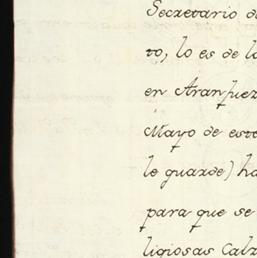 Secretario d
to, lo es de l
en Aranjuez
Mayo de este
le guarde) ha
para que se
ligiosas Calz